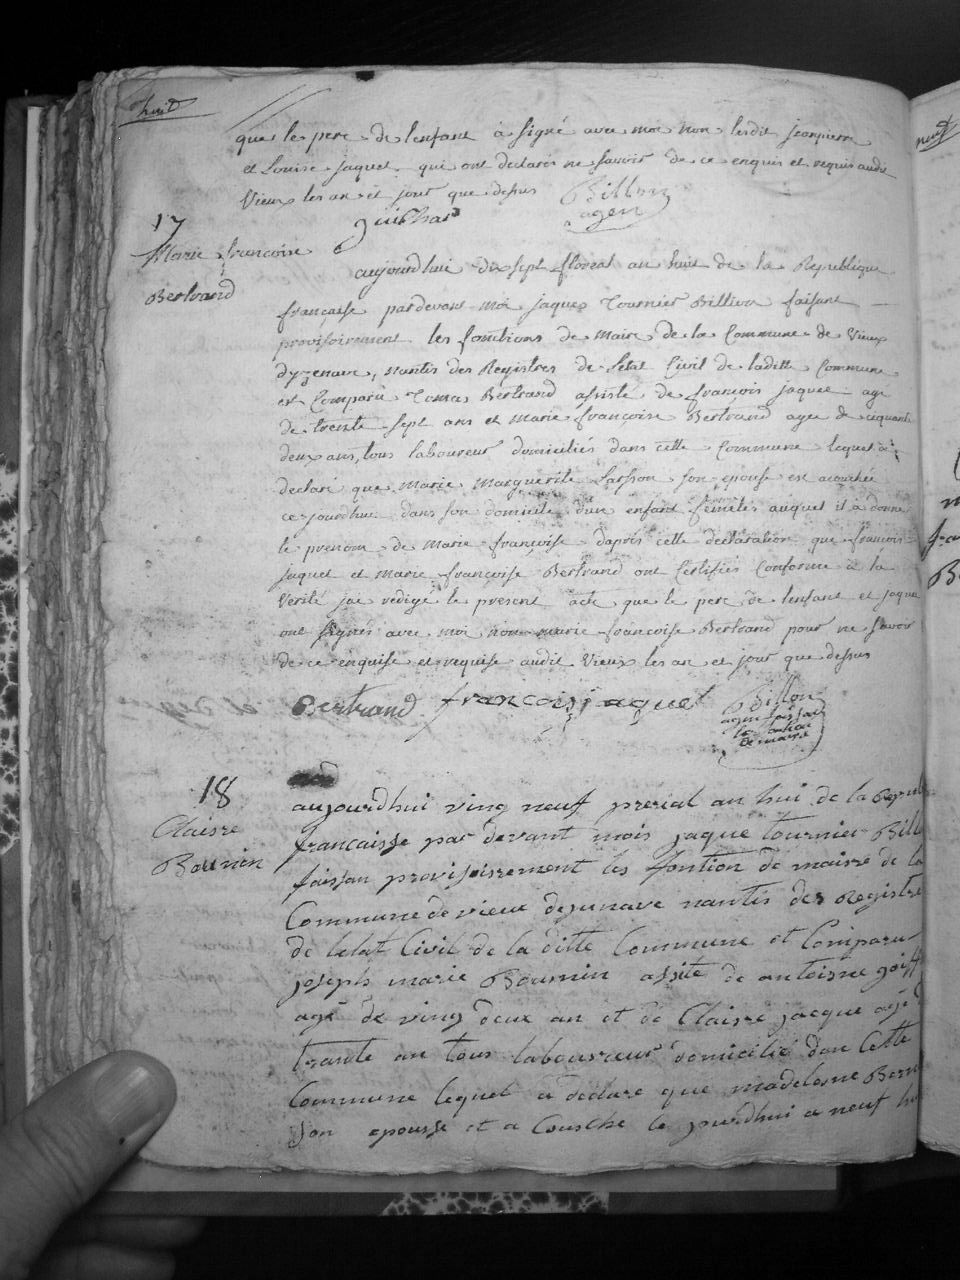 huit
que le pere de lenfant à signé avec moi non lesdit jeanpierre
et Louise jaquet qui ont declarés ne savoir de ce enquis et requis audit
Vieux les an et jour que dessus
Billion
agent
17
Marie françoise
Bertrand
aujourdhui dix sept floreal an huit de la Republique
française pardevant moi jaques Tournier Billion faisant
provisoirement les fonctions de maire de la Commune de Vieux
dyzenave, nantis des Registres de Letat Civil de laditte Commune
est Comparu Tomas Bertrand assisté de françois jaquet agé
de trente sept ans et Marie françoise Bertrand agee de
deux ans, tous laboureur domiciliés dans cette Commune lequel à
declaré que Marie Marguerite son epouse est acouchée
cejourdhui dans son domicile dun enfant femelès auquel il à donné
le prenom de Marie françoise daprès cette declaration que françois
jaquet et Marie françoise Bertrand ont Certifiés Conforme à la
Verité jai redigé le present acte que le pere de lenfant et jaquet
ont signés avec moi non marie françoise Bertrand pour ne savoir
de ce enquise et requise audit Vieux les an et jour que dessus
Bertrand françois jaquet
Billion
agent faisant
la fonction
de maire
18
Claisre
Bournin
aujourdhui ving neuf prerial an hui de la Repub
francaisse par devant mois jaque tournier Bill
faissan provisoirement les fontion de maisre de la
Commune de vieux dizenave nantis des Registre
de letat Civil de la ditte Commune et Comparu
joseph marie Bournin assité de antoisne
agé de ving deux an et de Claisre jacque agé
trante an tous laboureur domicilié dan Cette
Commune lequel à déclaré que madelesne
Son epousse et a Cousche le jourdhui a neuf